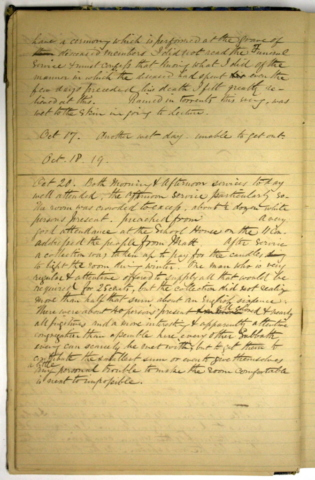 have a ceremony which is performed at the grave of
deceased members I did not read the Funeral
Service & must confess that having what I did of the
manner in which the deceased had spent the few
days preceded his death I felt greatly re-
this. Rained in torrents this evening, was
not to the going to lecture.
Oct 17. Another wet day unable to get out
Oct. 18. 19.
Oct 20. Both Morning & Afternoon services to day
well attended, the afternoon service particularly so.
The room was crowded to excess, about a dozen white
persons present. preached from A very
good attendance at the School House on the
addressed the people from Matt. After Service
a collection was taken up to pay for the candles
to light the room during winter. One man who is very
regular & attentive offered to supply all that would be
required for 25 cents, but the collection did not realize
more than half that sum, about an English sixpence.
There were about 40 persons present nearly
all fugitives and a more interesting & apparently attentive
congregation than assemble here every other Sabbath
evening can scarcely be met with, but to get them to
contribute the smallest sum or even to give themselves
any personal trouble to make the room comfortable
is next to impossible.